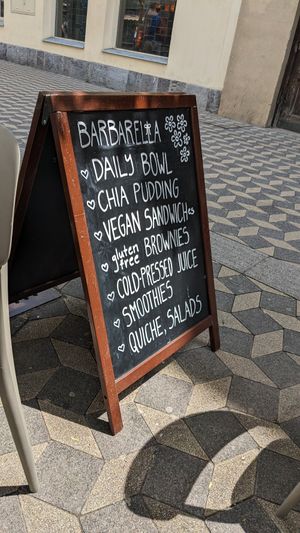 BARBARELLA
♡ DAILY BOWL
♡ CHIA PUDDING
♡ VEGAN SANDWICHes
♡ gluten free BROWNIES
♡ COLD-PRESSED JUICE
♡ SMOOTHIES
♡ QUICHE, SALADS